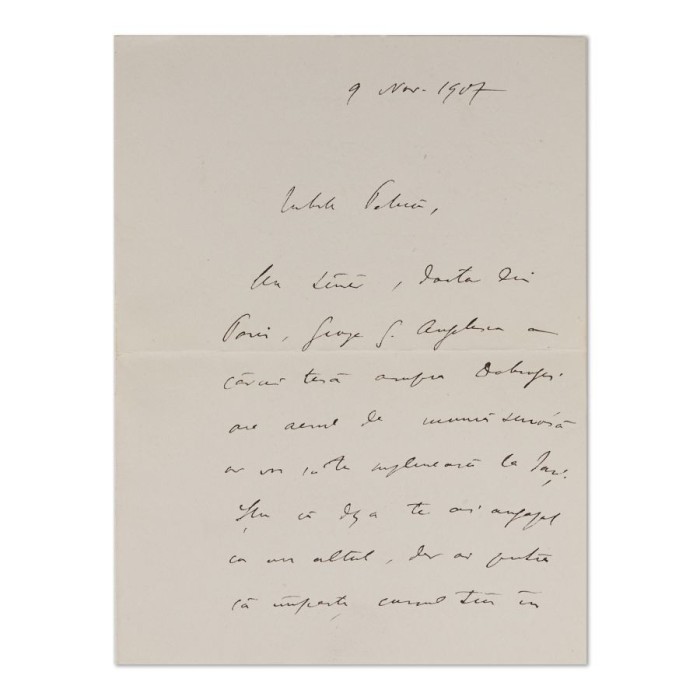 9 Nov. 1907
Iubite
Un tânăr, doctor din
Paris, George G. Anghelescu a
cărui tesă asupra Dobrogei
are aerul de muncă serioasă
ar vrea suplinească la Iași.
Știu că deja te-ai angajat
cu un altul, dar ai putea
să imparți cursul tău în